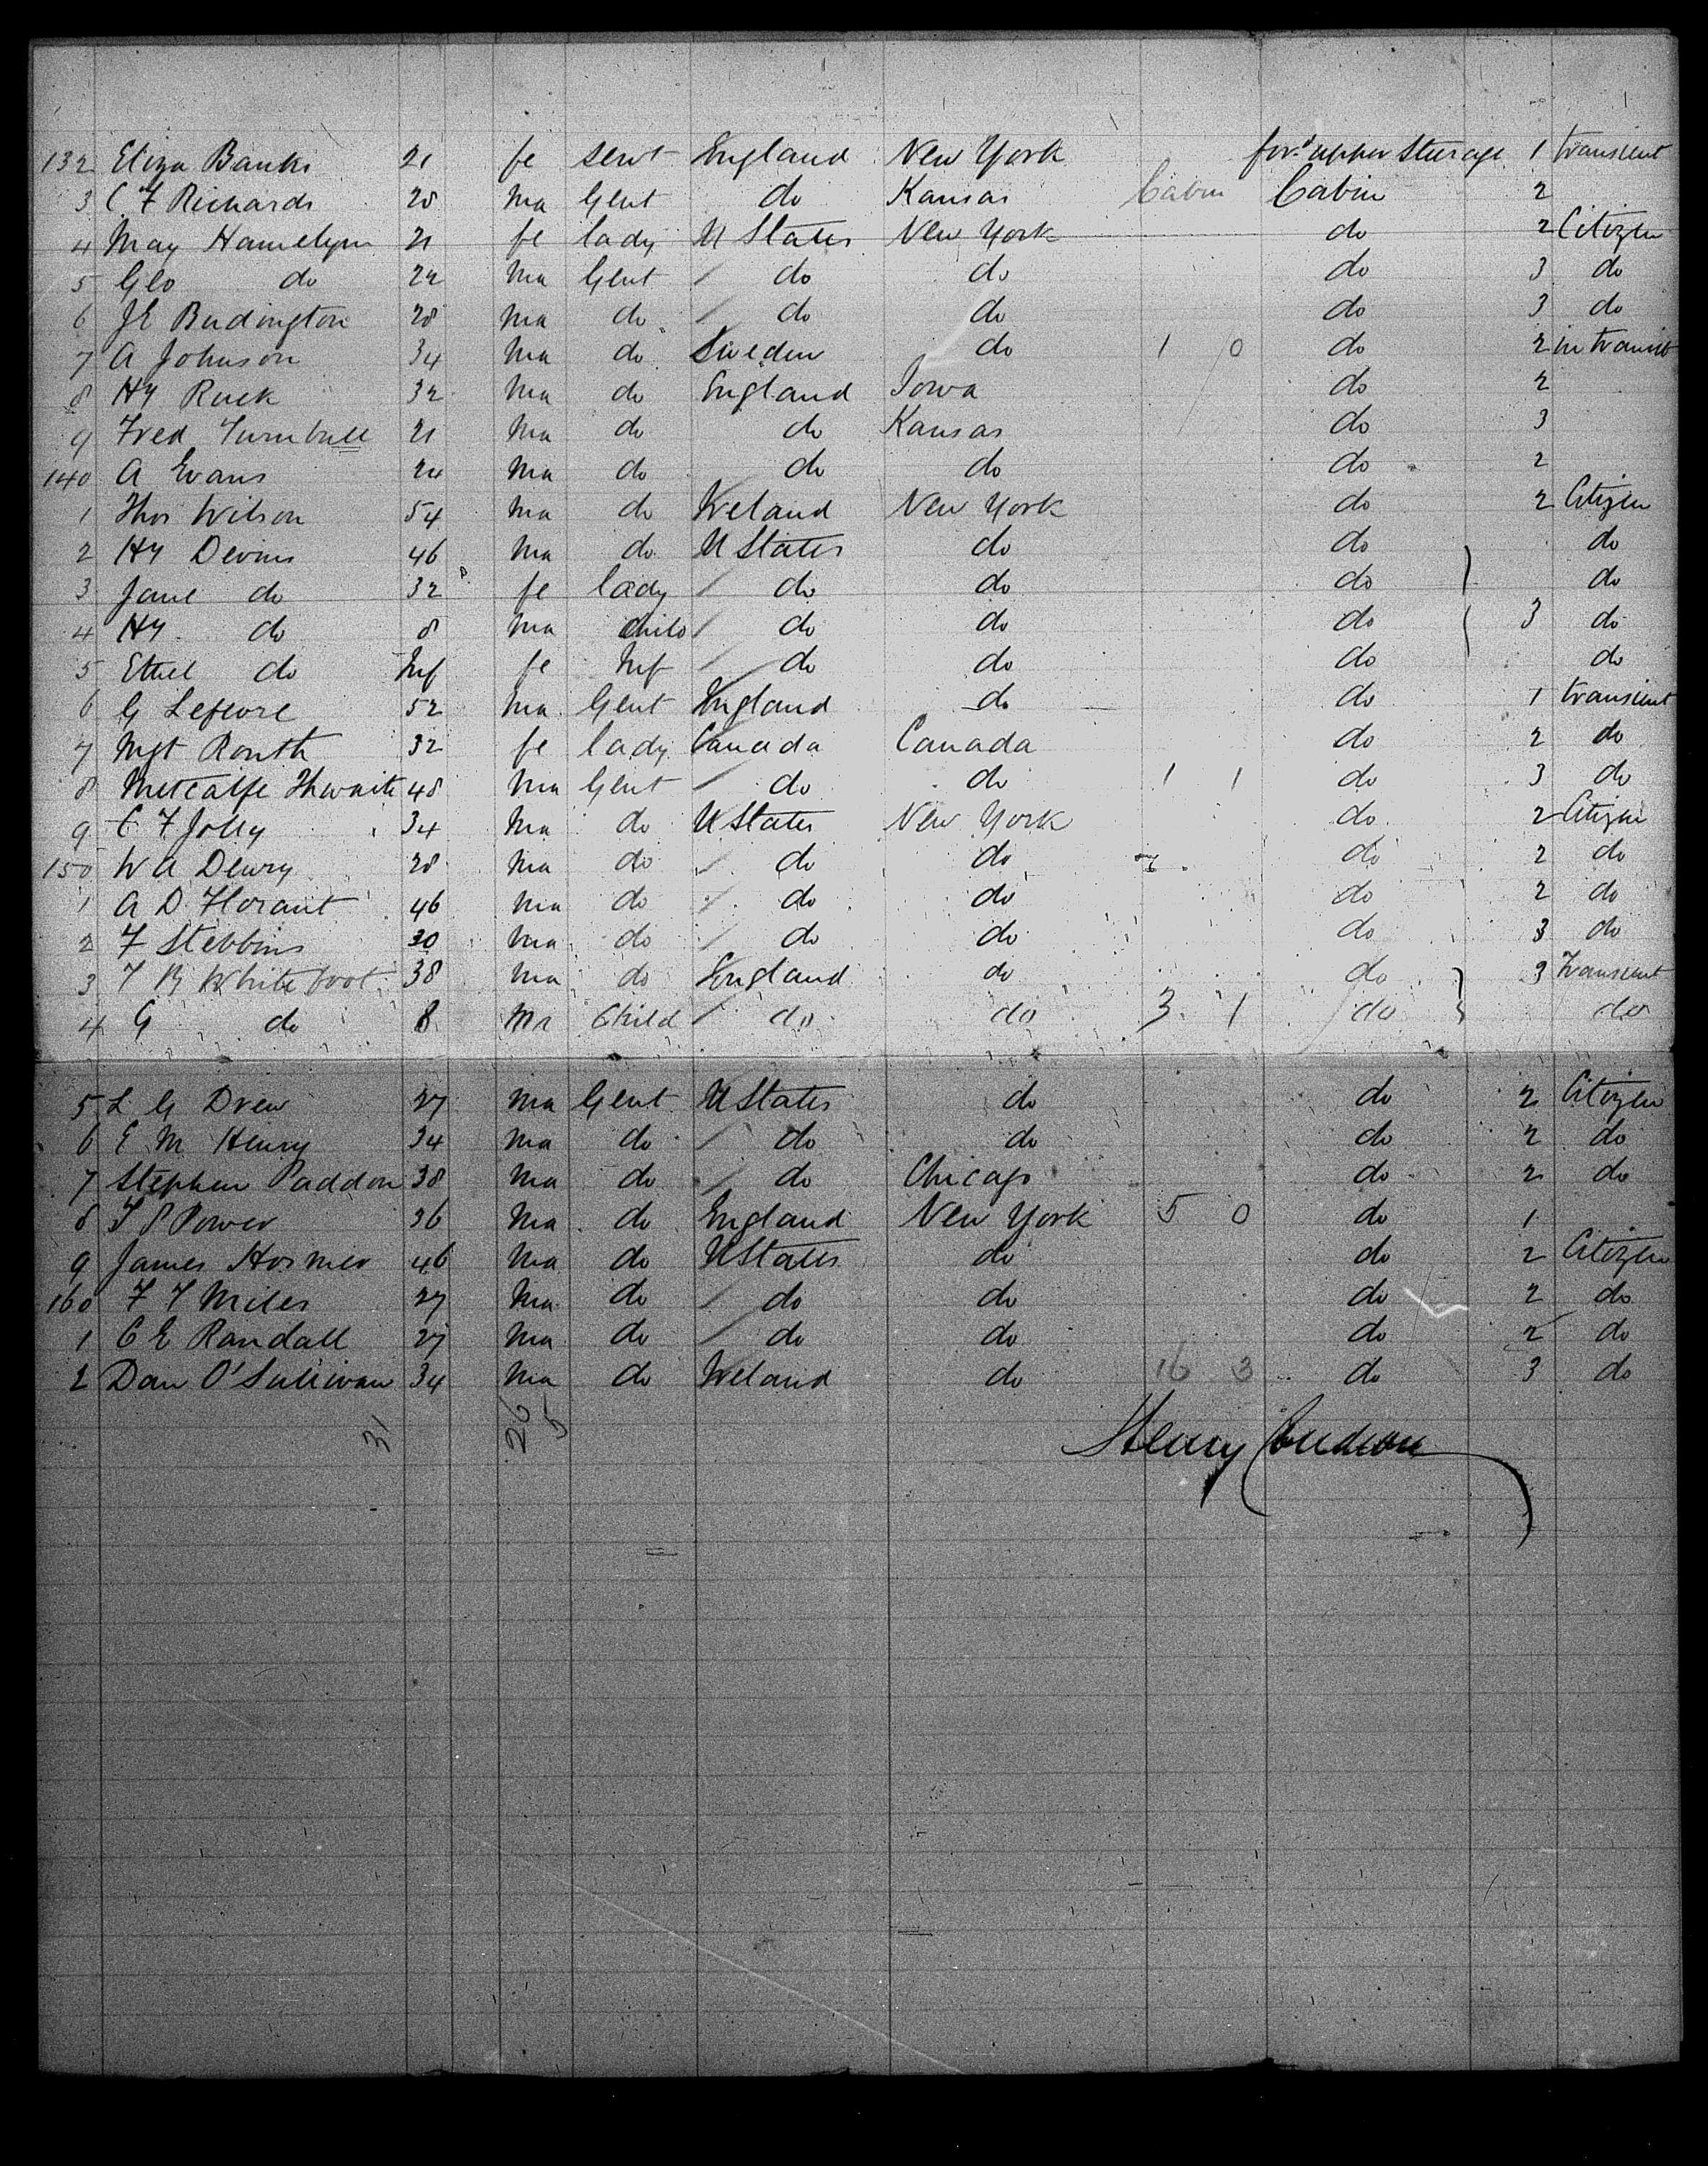 132 Eliza Banks 21 fe Servt England New York for'd upper Steerage 1 transient
3 C F Richards 28 ma Gent do Kansas Cabin Cabin 2
4 May Hamelyn 21 fe lady U States New York do 2 Citizen
5 Geo do 22 ma Gent / do do do 3 do
6 J E Budington 28 ma do / do do do 3 do
7 A Johnson 34 ma do Sweden do 1 0 do 2 in transit
8 Hy Ruck 32 ma do England Iowa do 2
9 Fred Turnbull 21 ma do do Kansas do 3
140 A Evans 24 ma do do do do 2
1 Thos Wilson 54 ma do Ireland New York do 2 Citizen
2 Hy Devins 46 ma do U States do do do
3 Jane do 32 fe lady / do do do do
4 Hy do 8 ma child / do do do 3 do
5 Ethel do Inf fe Inf / do do do do
6 G Lefevre 52 ma Gent England do do 1 transient
7 Mgt Routh 32 fe lady Canada Canada do 2 do
8 Metcalfe Thwaite 48 ma Gent / do do 1 1 do 3 do
9 C F Jolly 34 ma do U States New York do 2 Citizen
150 W A Dewry 28 ma do / do do do 2 do
1 A D Florant 46 ma do / do do do 2 do
2 F Stebbins 30 ma do / do do do 3 do
3 T B Whitefoot 38 ma do England do do 3 Transient
4 G do 8 Ma Child / do do 3 1 do do
5 L G Drew 27 ma Gent U States do do 2 Citizen
6 E M Henry 34 ma do / do do do 2 do
7 Stephen Paddon 38 ma do / do Chicago do 2 do
8 F S Power 36 ma do England New York 5 0 do 1
9 James Hosmer 46 ma do U States do do 2 Citizen
160 F F Miles 27 ma do / do do do 2 do
1 C E Randall 27 ma do / do do do 2 do
2 Dan O'Sullivan 34 ma do Ireland do 16 3 do 3 do
31 26 5
Henry